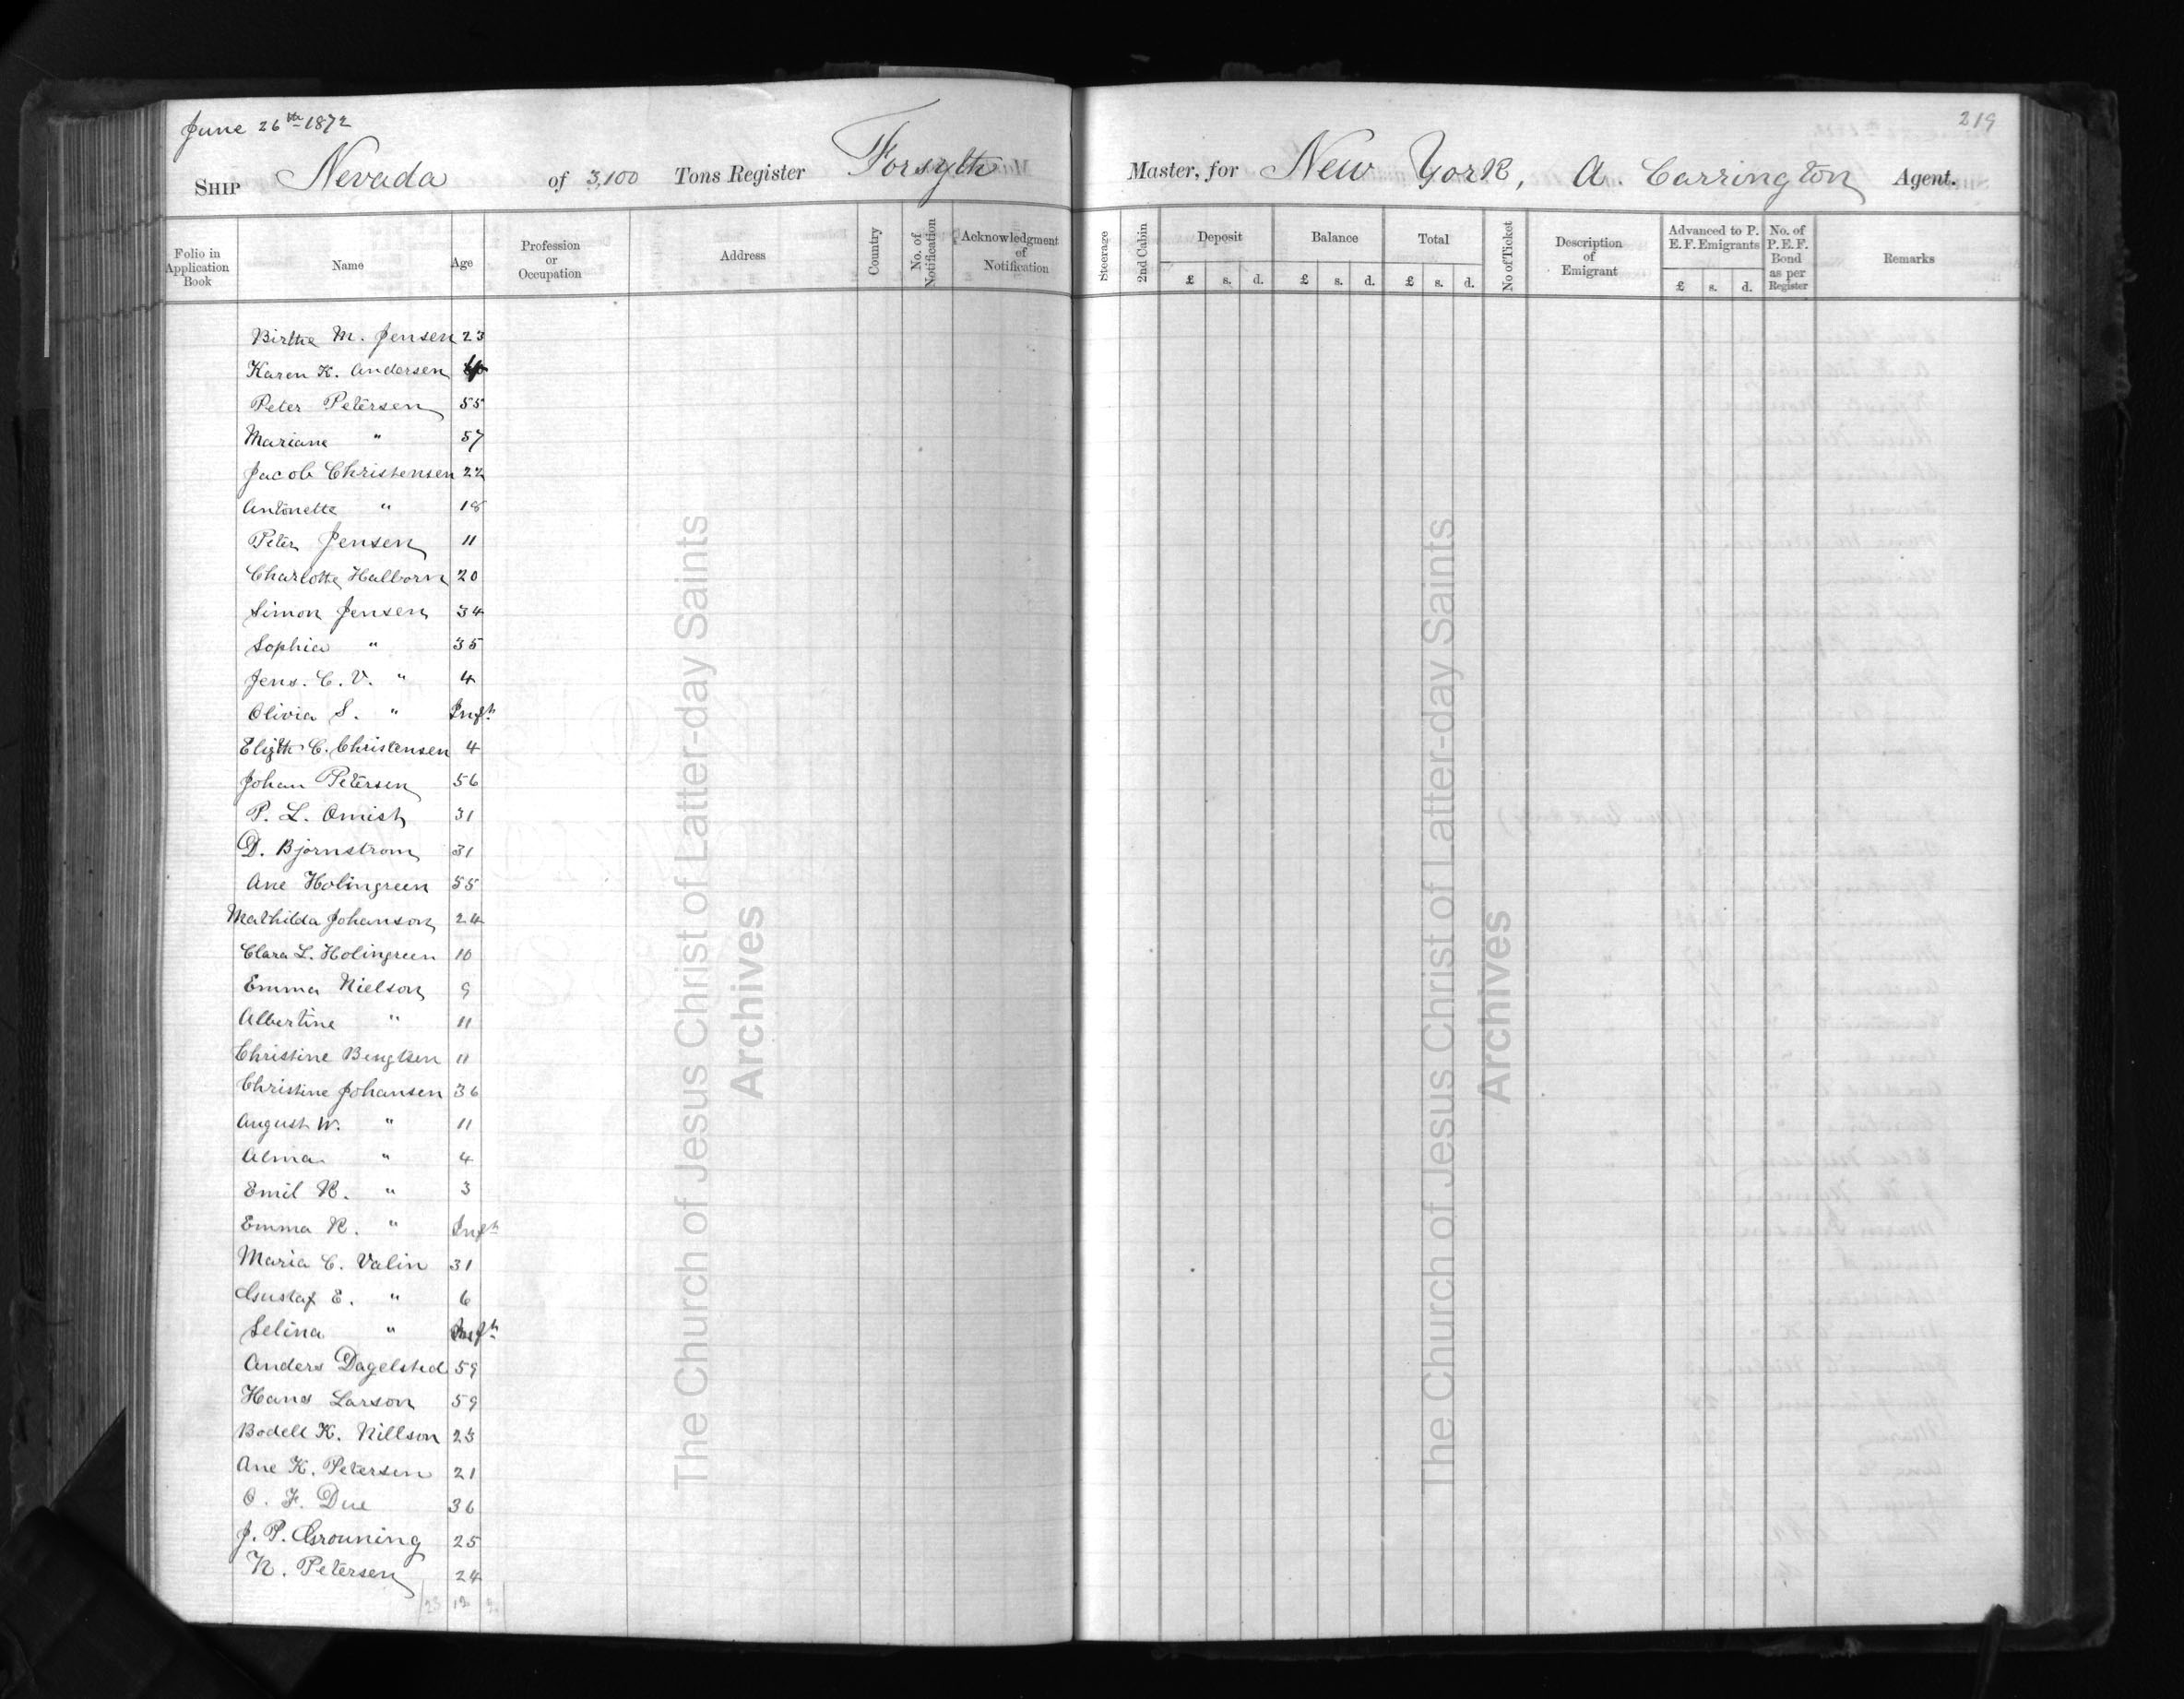 June 26th 1872
219
Ship Nevada of 3,100 Tons Register Forsyth Master, for New York, A. Carrington Agent.
Folio in Application Book
Name
Age
Profession or Occupation
Address
Country
No. of Notification
Acknowledgment of Notification
Steerage
2nd Cabin
Deposit
Balance
Total
No of Ticket
Description of Emigrant
Advanced to P. E. F. Emigrants
No. of P. E. F. Bond as per Register
Remarks
£ s. d. £ s. d. £ s. d. £ s. d.
Birthe M. Jensen 23
Karen K. Andersen
Peter Petersen 55
Mariane " 57
Jacob Christensen 22
Antonette " 18
Peter Jensen 11
Charlotte Halborn 20
Simon Jensen 34
Sophia " 35
Jens. C. V. " 4
Olivia S. " Inft
Elizth C. Christensen 4
Johan Petersen 56
P. L. Omish 31
D. Bjornstrom 31
Ane Holingreen 55
Mathilda Johanson 24
Clara L. Holingreen 10
Emma Nielson 9
Albertine " 11
Christine Bengtsen 11
Christine Johansen 36
August W. " 11
Alma " 4
Emil R. " 3
Emma R. " Inft
Maria C. Valin 31
Gustaf E. " 6
Selina " Inft
Anders Dagelsted 59
Hans Larson 59
Bodell K. Nillson 23
Ane K. Petersen 21
C. F. Due 36
J. P. Grouning 25
N. Petersen 24
The Church of Jesus Christ of Latter-day Saints
Archives
The Church of Jesus Christ of Latter-day Saints
Archives